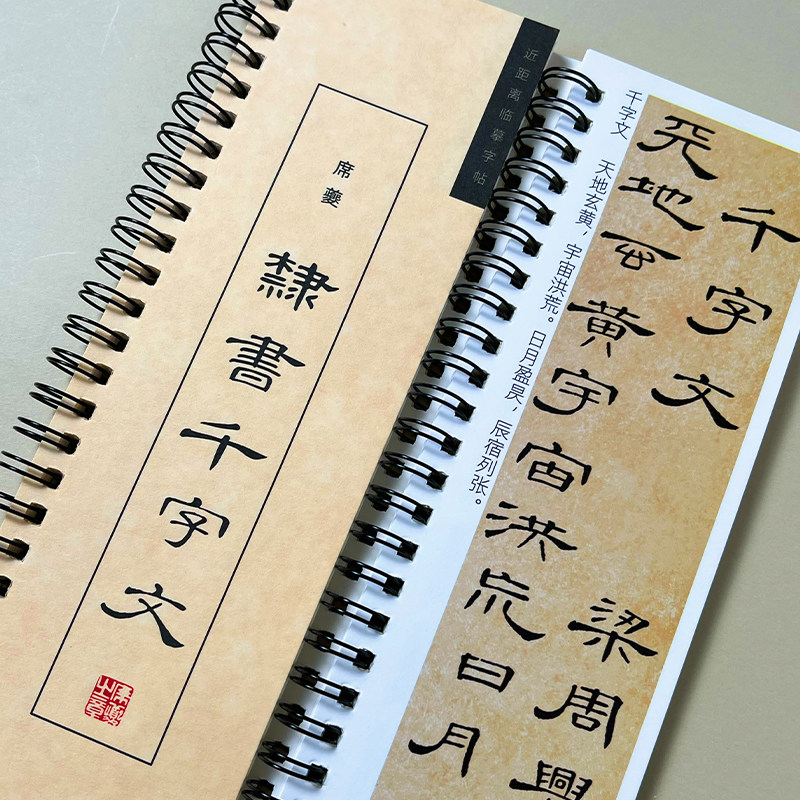 近距离临摹字帖
席夔
隸書千字文
席夔之章
千字文 天地玄黄，宇宙洪荒。日月盈昃，辰宿列张。
千字文 梁周興
天地玄黄宇宙洪荒日月